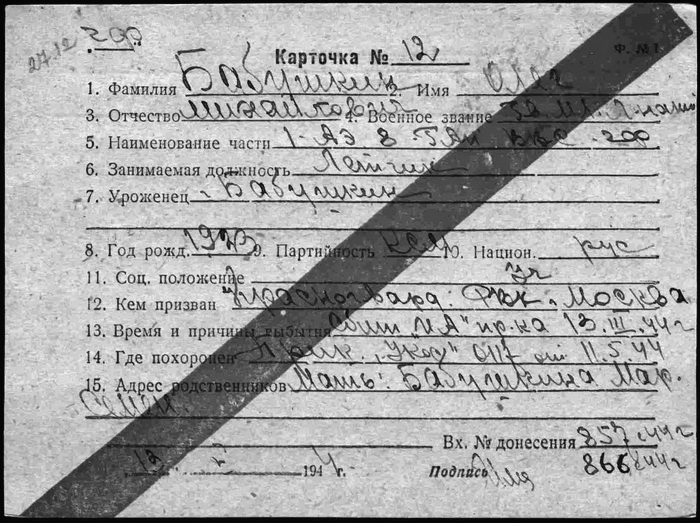 27.12 ЧФ
Карточка № 12 Ф. № 1
1. Фамилия Бабушкин 2. Имя Олег
3. Отчество Михайлович 4. Военное звание Гв. мл. л-нант
5. Наименование части 1-АЭ 8 ГАП ВВС ЧФ
6. Занимаемая должность Летчик
7. Уроженец Бабушкин
8. Год рожд. 1923 9. Партийность ВКСМ 10. Национ. рус
11. Соц. положение Уч
12. Кем призван Красногвард. РВК. Москва
13. Время и причины выбытия пр-ка 13.III.44г
14. Где похоронен от 11.5.44
15. Адрес родственников Мать: Бабушкина Мар.
Семен.
Вх. № донесения 857 44г
12 194 4 г. Подпись 866 44г